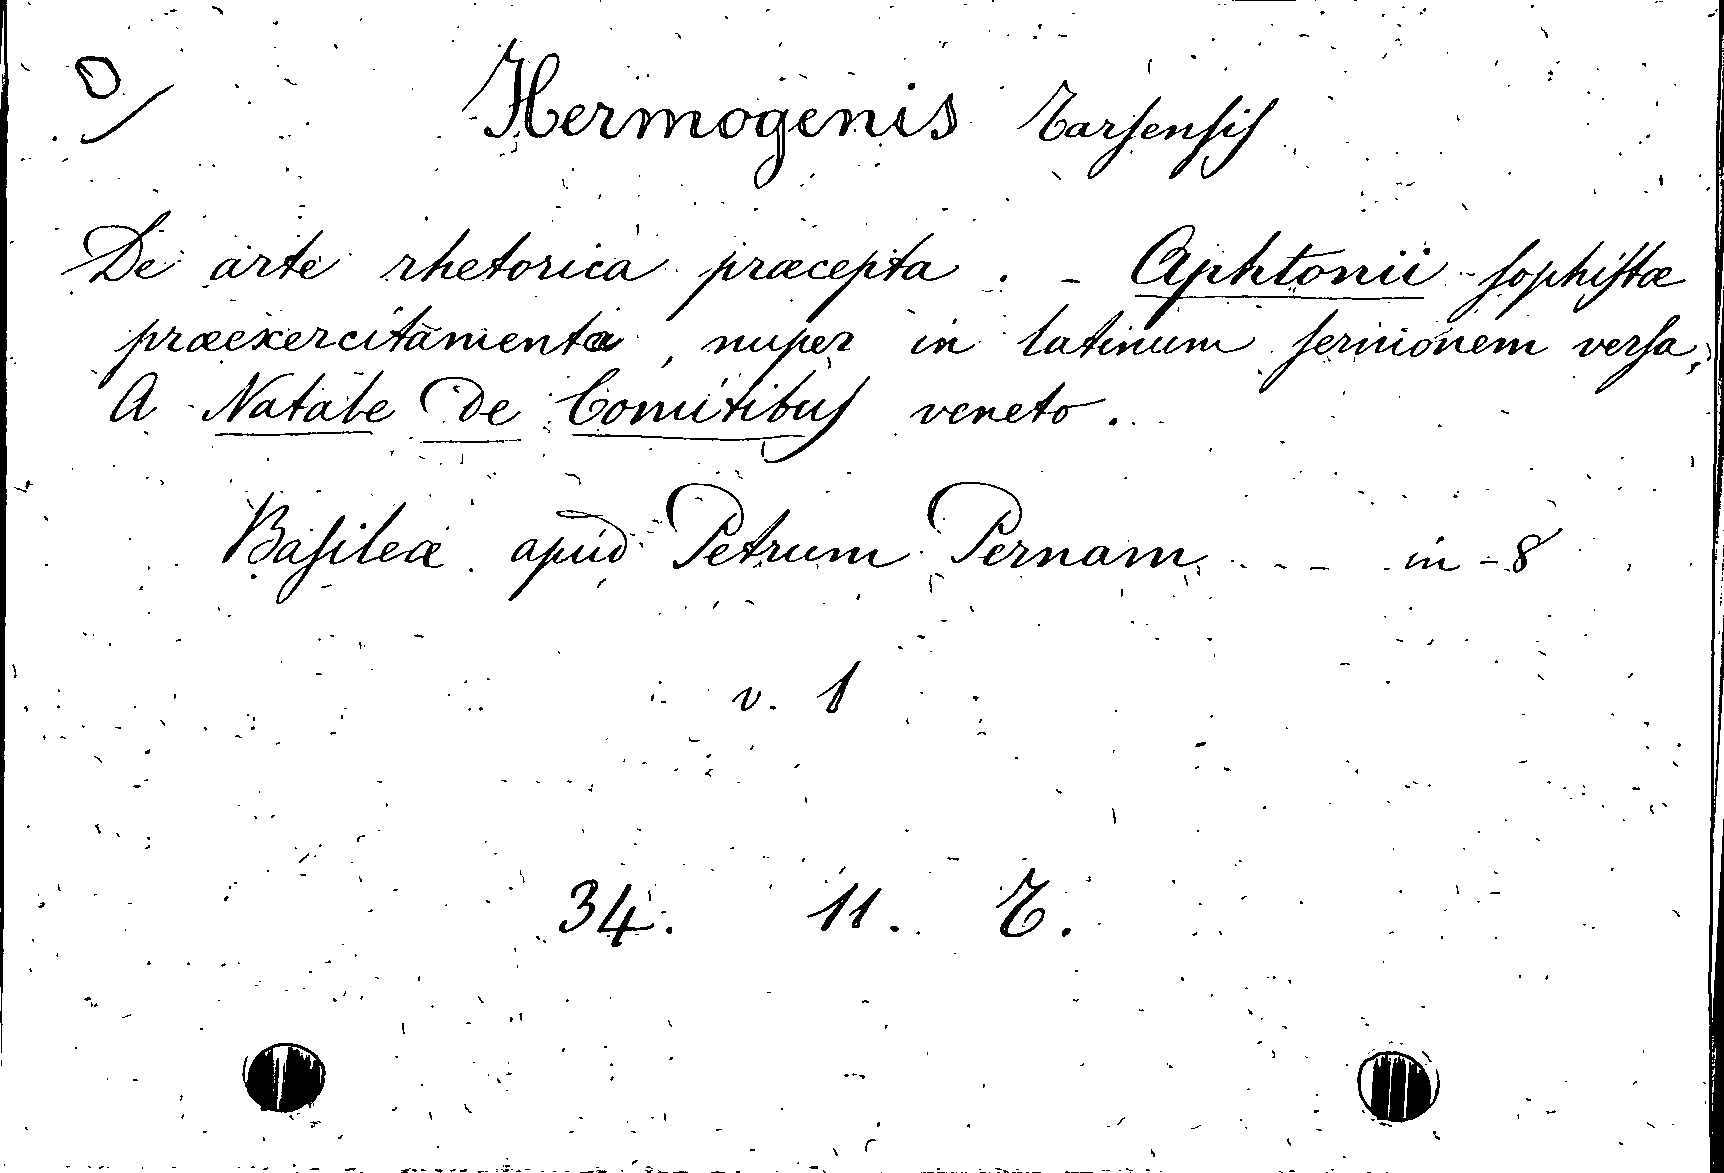 D
Hermogenis Tarsensis
De arte rhetorica præcepta . - Aphtonii sophistæ
præexercitamenta, nuper in latinum sermonem versa,
A Natale De Comitibus veneto.
Basileæ apud Petrum Pernam - - - in-8
v. 1
34. 11. T.